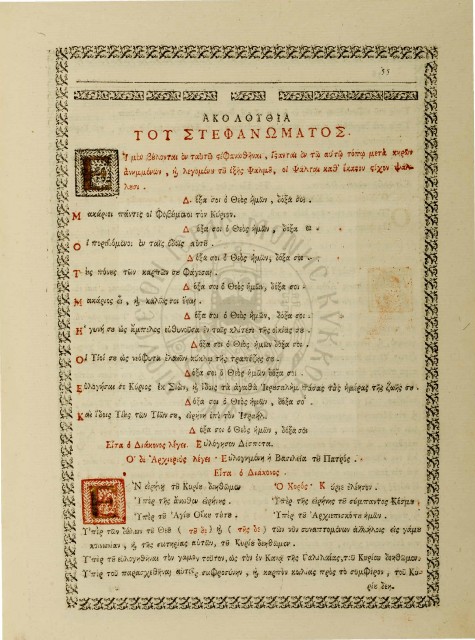 55
ΑΚΟΛΟΥΘΙΑ
ΤΟΥ ΣΤΕΦΑΝΩΜΑΤΟΣ.
Εἰ μὲν βούλονται ἐν ταὐτῷ στεφανωθῆναι, ἵστανται ἐν τῷ αὐτῷ τόπῳ μετὰ κηρῶν
ἀνημμένων, ἢ λεγομένου τοῦ ἑξῆς ψαλμοῦ, οἱ ψάλται καθ' ἕκαστον στίχον ψάλ-
λουσι.
Δόξα σοι ὁ Θεὸς ἡμῶν, δόξα σοι.
Μακάριοι πάντες οἱ φοβούμενοι τὸν Κύριον.
Δόξα σοι ὁ Θεὸς ἡμῶν, δόξα σοι
Οἱ πορευόμενοι ἐν ταῖς ὁδοῖς αὐτοῦ.
Δόξα σοι ὁ Θεὸς ἡμῶν, δόξα σοι.
Τοὺς πόνους τῶν καρπῶν σου φάγεσαι.
Δόξα σοι ὁ Θεὸς ἡμῶν, δόξα σοι.
Μακάριος εἶ, ἢ καλῶς σοι ἔσται.
Δόξα σοι ὁ Θεὸς ἡμῶν, δόξα σοι.
Ἡ γυνή σου ὡς ἄμπελος εὐθηνοῦσα ἐν τοῖς κλίτεσι τῆς οἰκίας σου.
Δόξα σοι ὁ Θεὸς ἡμῶν δόξα σοι.
Οἱ Υἱοί σου ὡς νεόφυτα ἐλαιῶν κύκλῳ τῆς τραπέζης σου.
Δόξα σοι ὁ Θεὸς ἡμῶν δόξα σοι.
Εὐλογήσαι σε Κύριος ἐκ Σιὼν, ἢ ἴδοις τὰ ἀγαθὰ Ἱερουσαλὴμ πάσας τὰς ἡμέρας τῆς ζωῆς σου.
Δόξα σοι ὁ Θεὸς ἡμῶν, δόξα σοι.
Καὶ ἴδοις Υἱοὺς τῶν Υἱῶν σου, εἰρήνη ἐπὶ τὸν Ἰσραήλ.
Δόξα σοι ὁ Θεὸς ἡμῶν, δόξα σοι
Εἶτα ὁ Διάκονος λέγει. Εὐλόγησον Δέσποτα.
Ὁ δὲ Ἀρχιερεὺς λέγει. Εὐλογημένη ἡ Βασιλεία τοῦ Πατρὸς.
Εἶτα ὁ Διάκονος.
Ἐν εἰρήνῃ τοῦ Κυρίου δεηθῶμεν Ὁ Χορὸς. Κύριε ἐλέησον.
Ὑπὲρ τῆς ἄνωθεν εἰρήνης. Ὑπὲρ τῆς εἰρήνης τοῦ σύμπαντος Κόσμου.
Ὑπὲρ τοῦ Ἁγίου Οἴκου τούτου. Ὑπὲρ τοῦ Ἀρχιεπισκόπου ἡμῶν.
Ὑπὲρ τῶν δούλων τοῦ Θεοῦ (τοῦ δε) ἢ (τῆς δε) τῶν νῦν συναπτομένων ἀλλήλοις εἰς γάμου
κοινωνίαν, ἢ τῆς σωτηρίας αὐτῶν, τοῦ Κυρίου δεηθῶμεν.
Ὑπὲρ τοῦ εὐλογηθῆναι τὸν γάμον τοῦτον, ὡς τὸν ἐν Κανᾷ τῆς Γαλιλαίας, τοῦ Κυρίου δεηθῶμεν.
Ὑπὲρ τοῦ παρασχεθῆναι αὐτοῖς σωφροσύνην, ἢ καρπὸν κοιλίας πρὸς τὸ συμφέρον, τοῦ Κυ-
ρίου δεη.